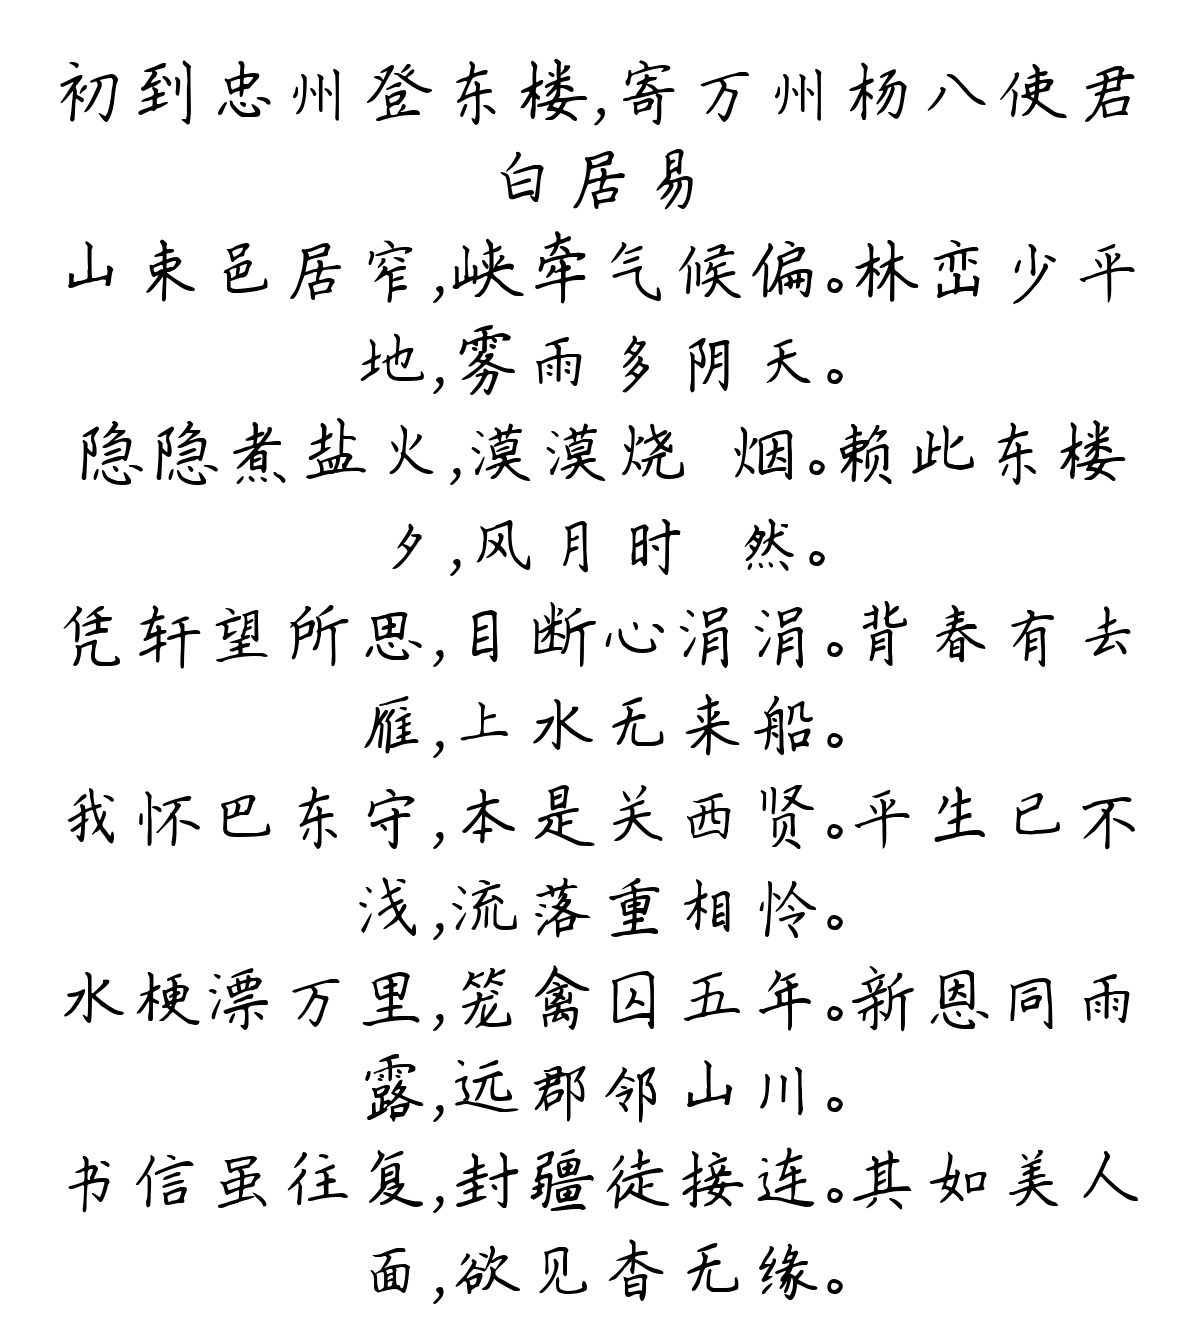 初到忠州登东楼,寄万州杨八使君
白居易
山束邑居窄,峡牵气候偏。林峦少平
地,雾雨多阴天。
隐隐煮盐火,漠漠烧 烟。赖此东楼
夕,风月时 然。
凭轩望所思,目断心涓涓。背春有去
雁,上水无来船。
我怀巴东守,本是关西贤。平生已不
浅,流落重相怜。
水梗漂万里,笼禽囚五年。新恩同雨
露,远郡邻山川。
书信虽往复,封疆徒接连。其如美人
面,欲见杳无缘。